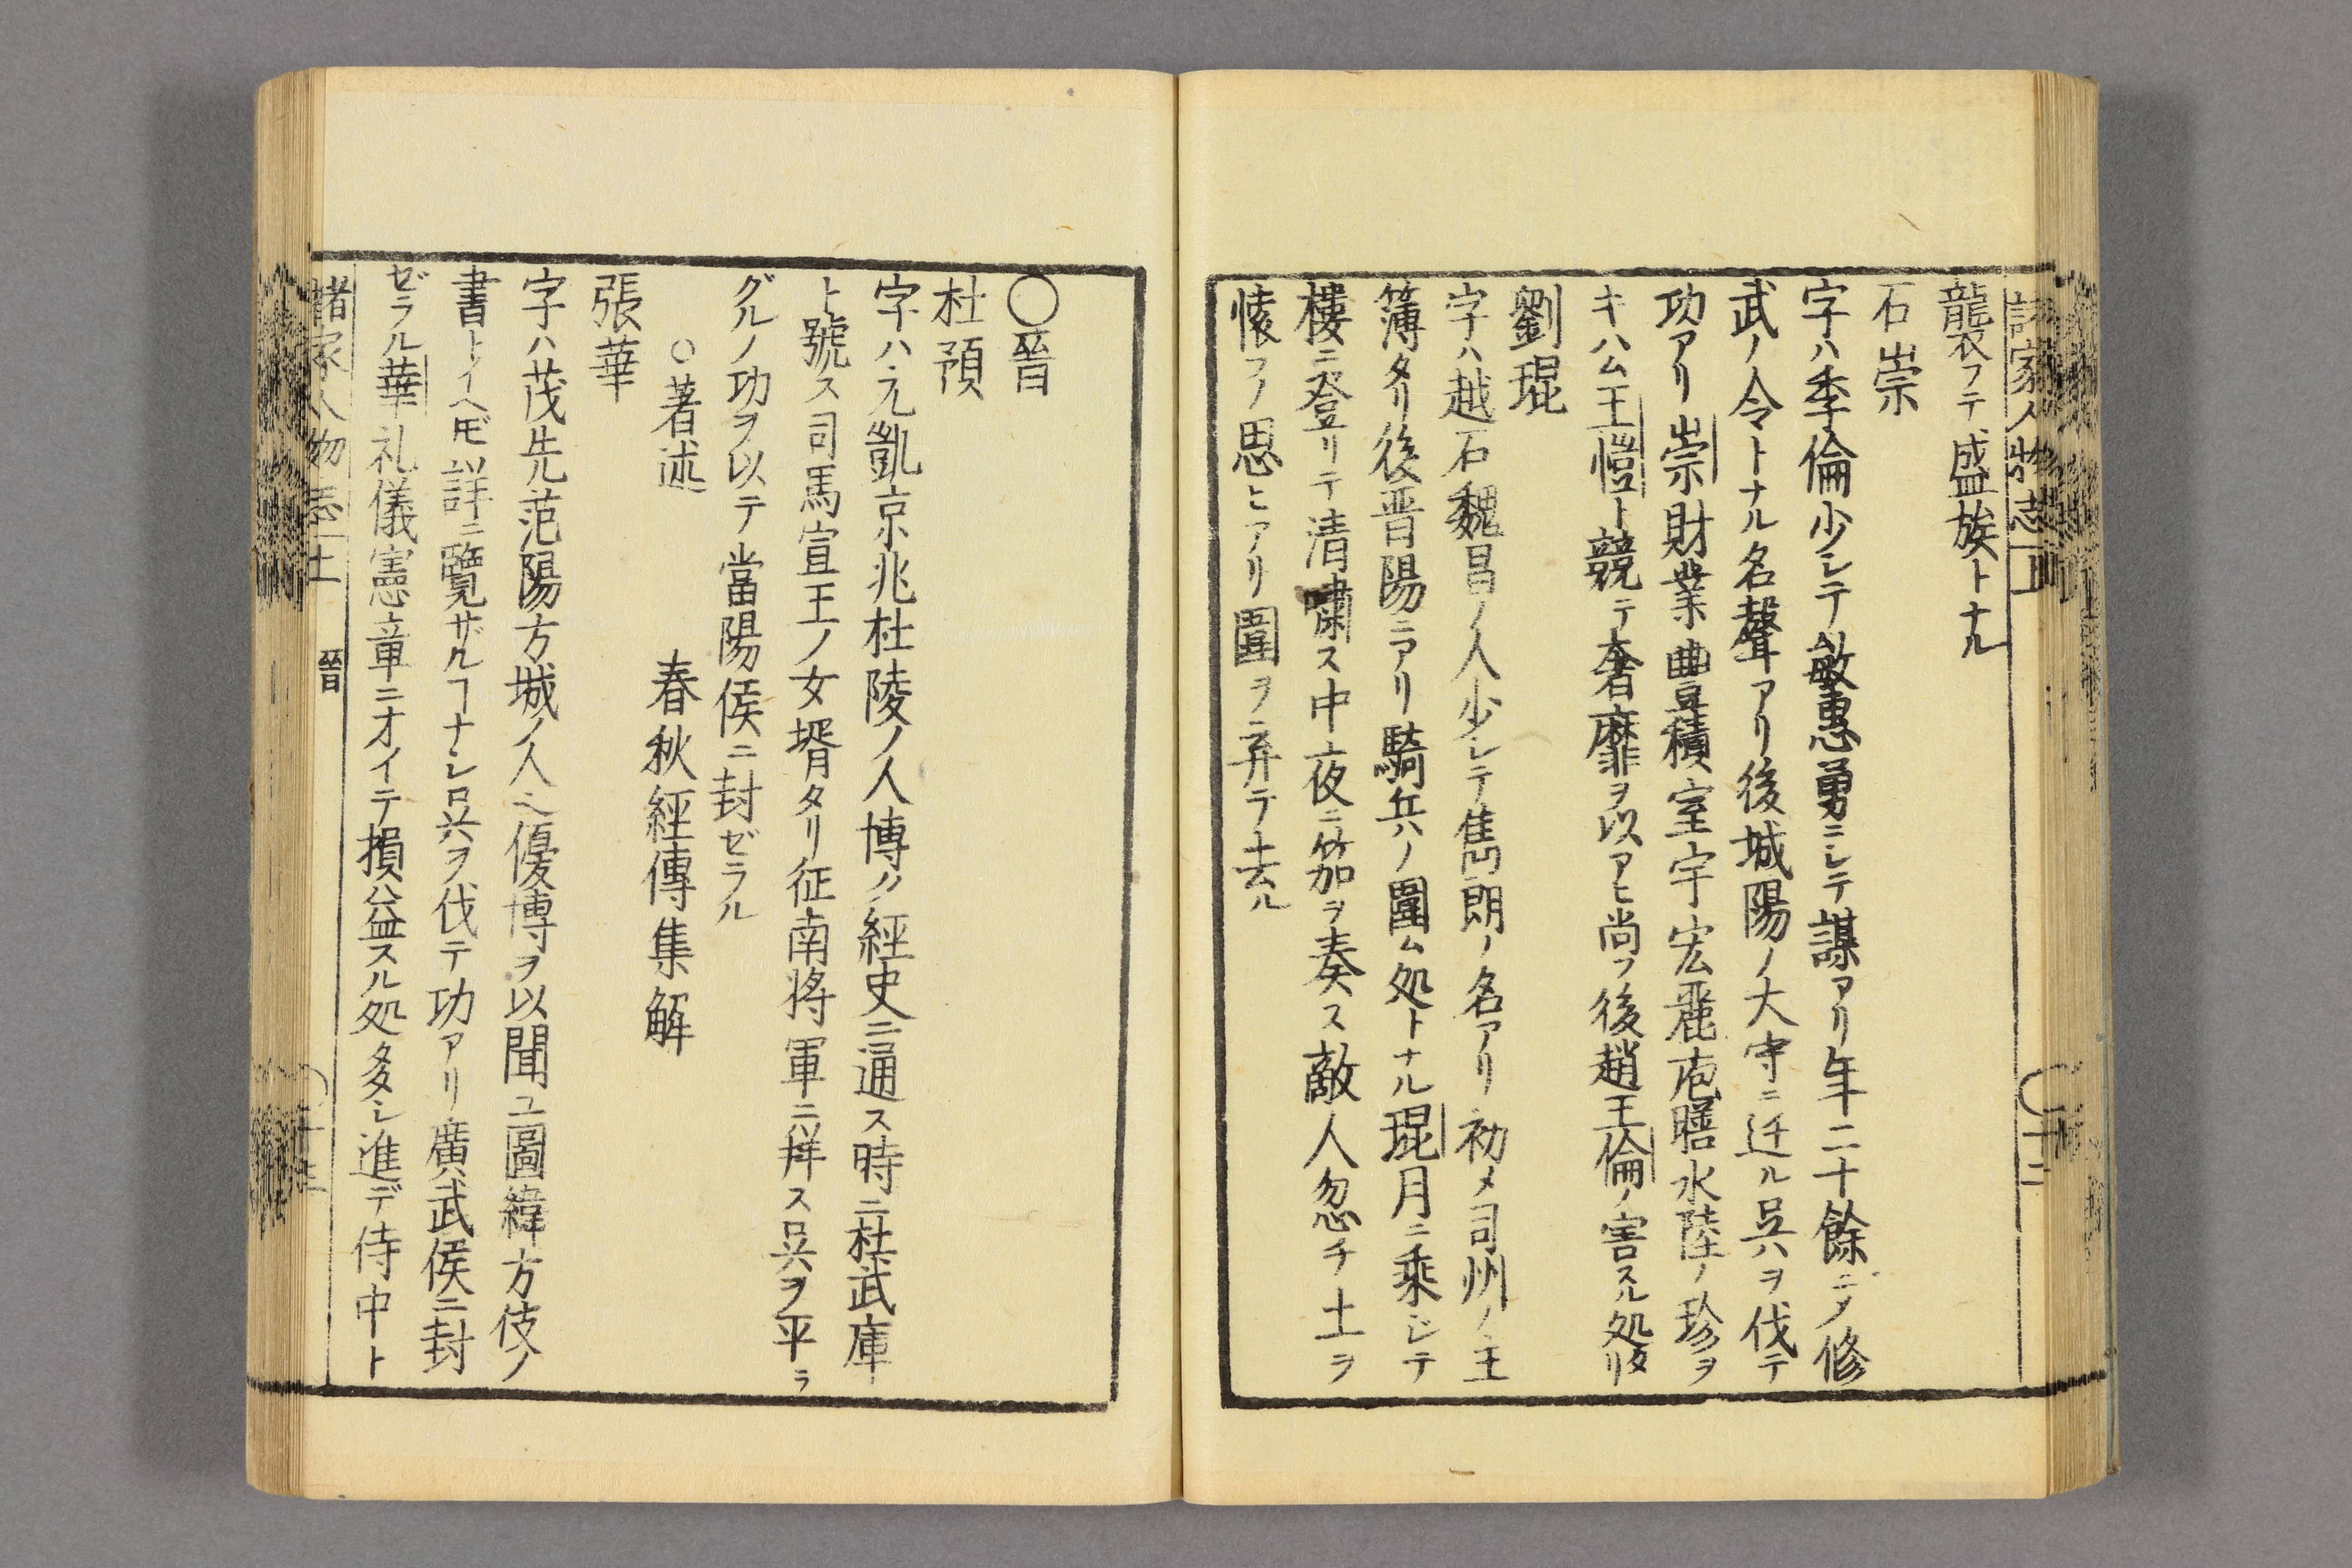 諸家人物志上
襲フテ盛族トナル
石崇
字ハ季倫少シテ敏惠勇ニシテ謀アリ年二十餘ニメ修
武ノ令トナル名聲アリ後城陽ノ大守ニ迁ル呉ヲ伐テ
功アリ崇財業豊積室宇宏麗庖膳水陸ノ珍ヲ
キハム王愷ト競テ奢靡ヲ以アヒ尚フ後趙王倫ノ害スル処
劉琨
字ハ越石魏昌ノ人少シテ雋朗ノ名アリ初メ司州ノ主
簿タリ後晋陽ニアリ騎兵ノ圍ム処トナル琨月ニ乘シテ
樓ニ登リテ清嘯ス中夜ニ笳ヲ奏ス敵人忽チ土ヲ
懐フノ思ヒアリ圍ヲ弃テ去ル
〇晉
杜預
字ハ元凱京兆杜陵ノ人博ク經史ニ通ス時ニ杜武庫
ト號ス司馬宣王ノ女壻タリ征南将軍ニ拜ス呉ヲ平ラ
グルノ功ヲ以テ當陽侯ニ封ゼラル
○著述　　春秋經傳集解
張華
字ハ茂先范陽方城ノ人也優博ヲ以聞ユ圖緯方伎ノ
書トイヘ𪜈詳ニ覽ザルヿナシ呉ヲ伐テ功アリ廣武侯ニ封
ゼラル華礼儀憲章ニオイテ損益スル処多シ進デ侍中ト
諸家人物志上　晉